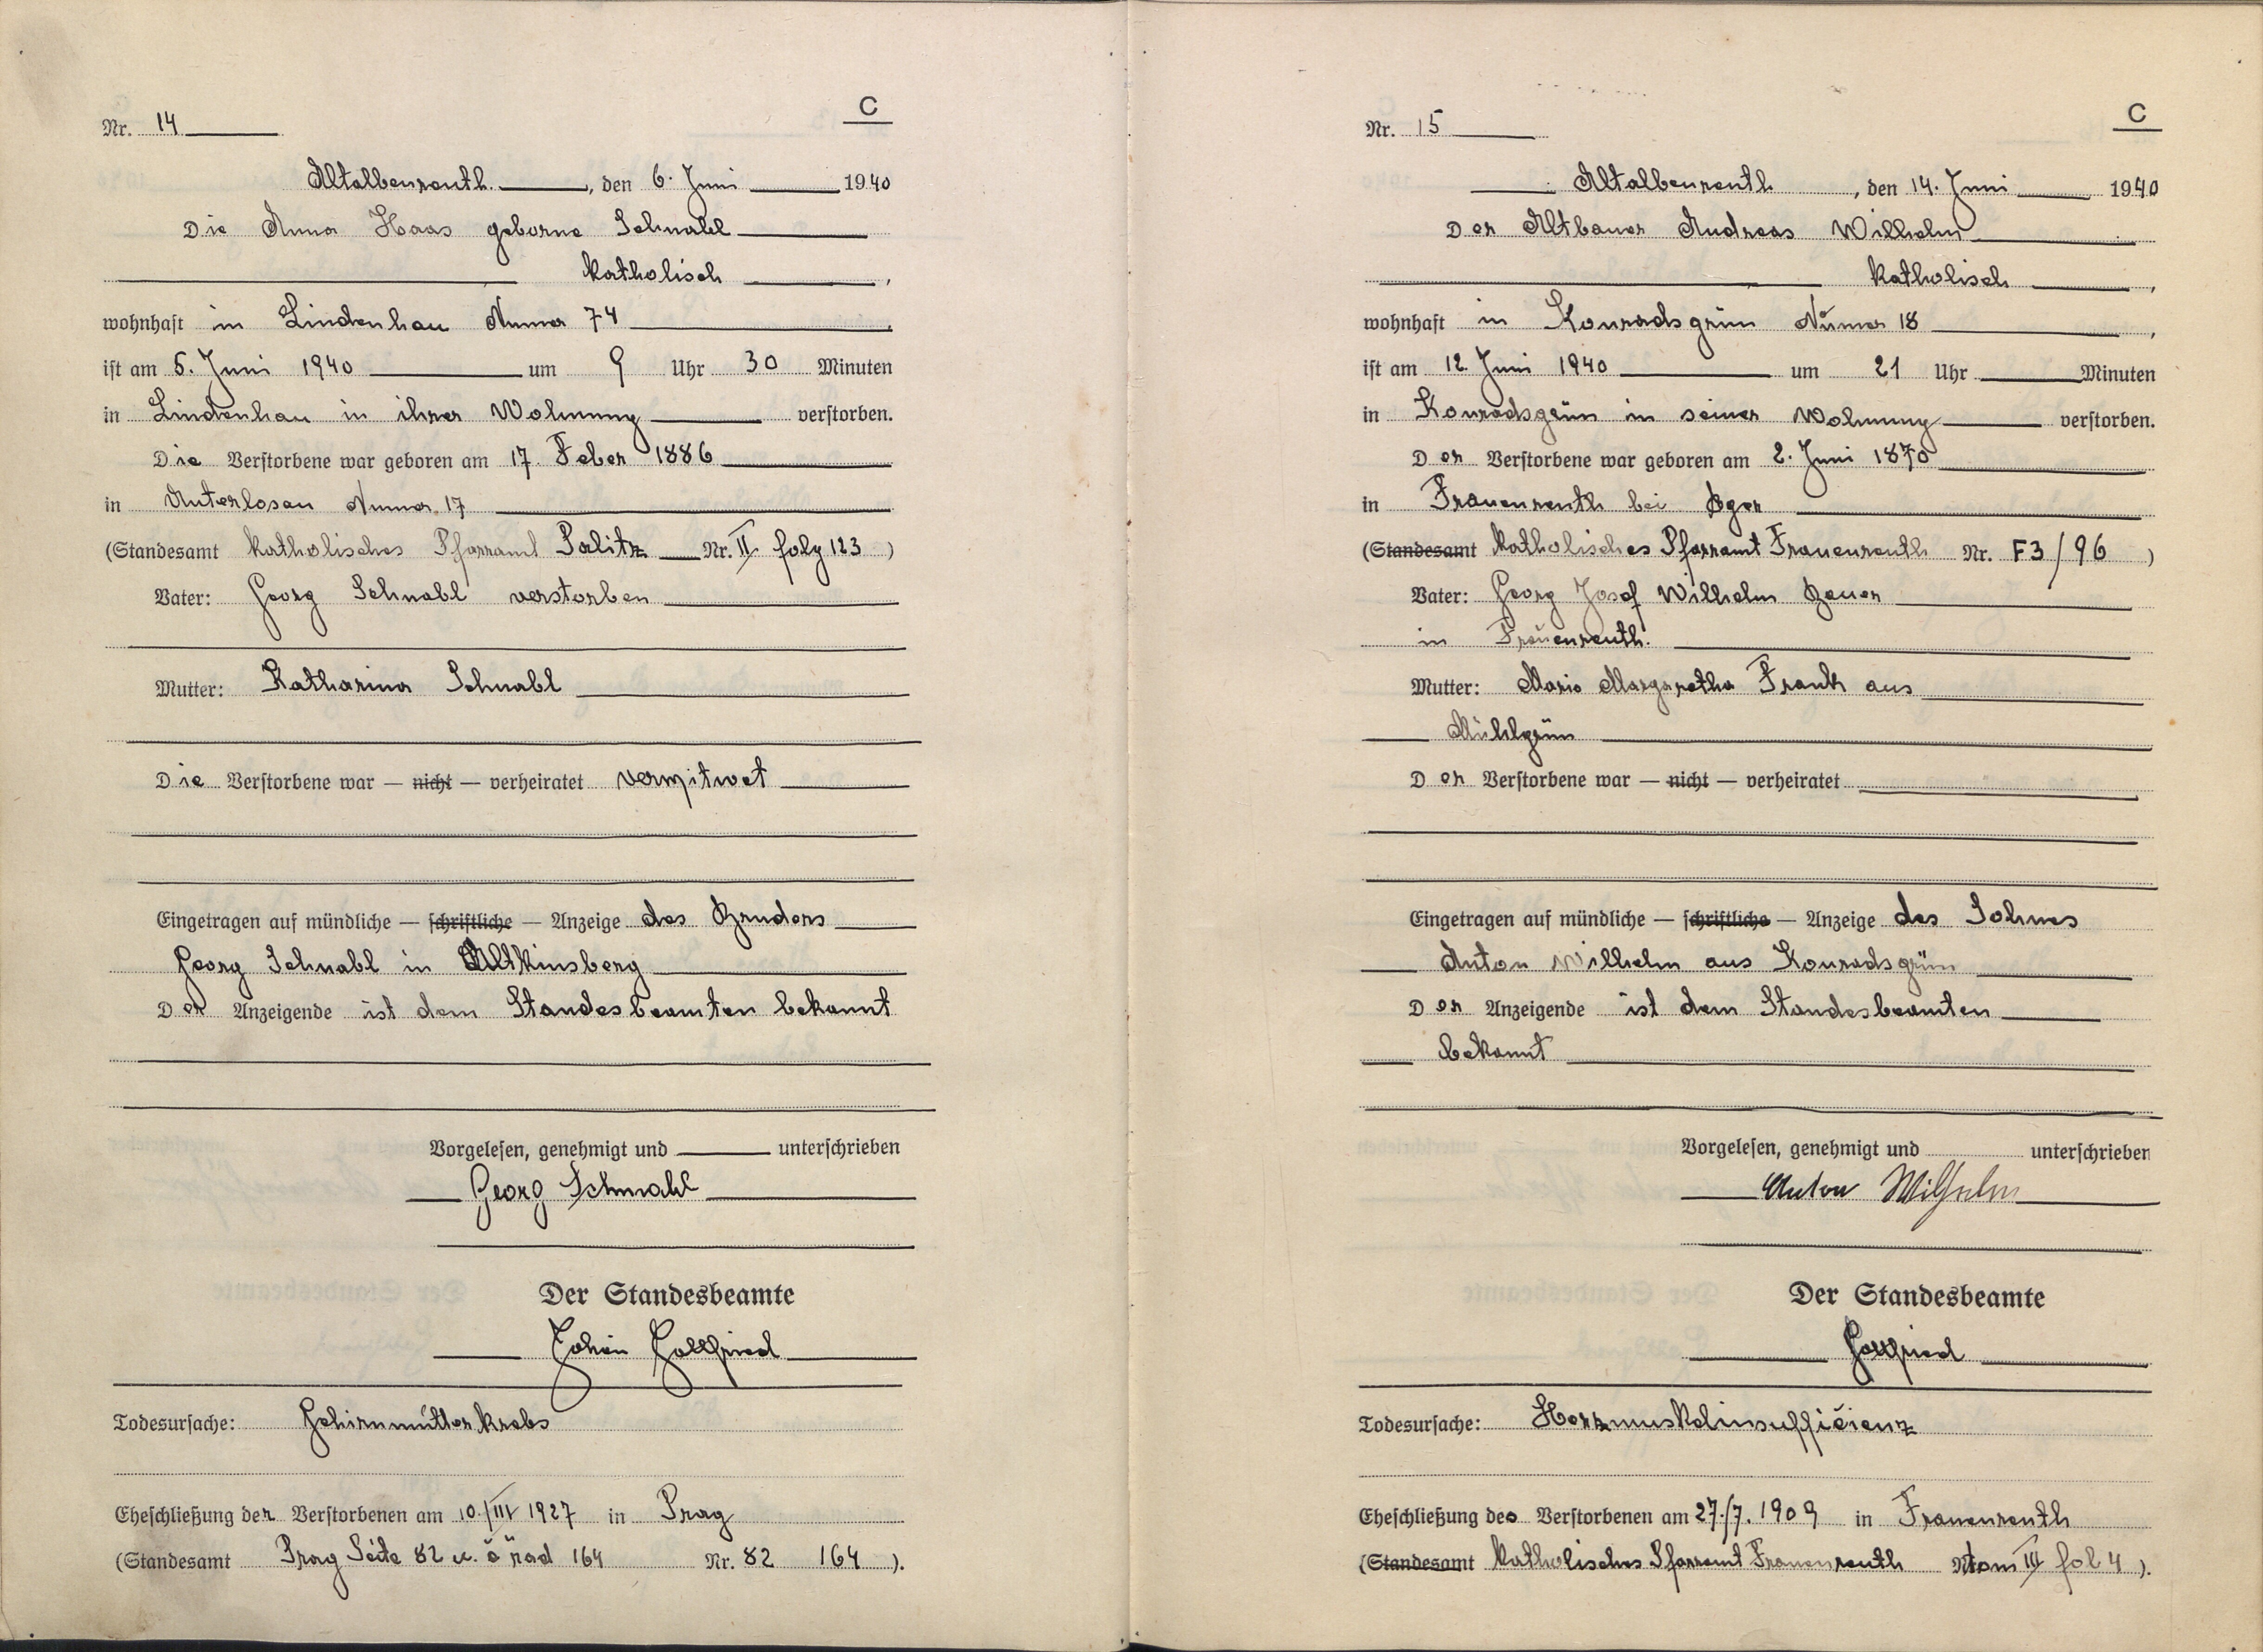 C
Nr. 14
Altalbenreuth, den 6. Juni 1940
Die Anna Haas geborne Schnabl
katholisch,
wohnhaft in Lindenhau Numer 74,
ist am 5. Juni 1940 um 9 Uhr 30 Minuten
in Lindenhau in ihrer Wohnung verstorben.
Die Verstorbene war geboren am 17. Feber 1886
in Unterlosau Numer 17
(Standesamt katholisches Pfarramt Palitz Nr. II foly 123)
Vater: Georg Schnabl verstorben
Mutter: Katharina Schnabl
Die Verstorbene war — nicht — verheiratet verwitwet
Eingetragen auf mündliche — schriftliche — Anzeige des Bruders
Georg Schnabl in Altkinsberg
Der Anzeigende ist dem Standesbeamten bekannt
Vorgelesen, genehmigt und unterschrieben
Georg Schnabl
Der Standesbeamte
Johan Gottfried
Todesursache: Gehirnmütterkrebs
Eheschließung der Verstorbenen am 10./III 1927 in Prag
(Standesamt Prag Seite 82 u. ö řad 164 Nr. 82 164).
C
Nr. 15
Altalbenreuth, den 14. Juni 1940
Der Altbauer Andreas Wilhelm
katholisch,
wohnhaft in Konradsgrün Numer 18,
ist am 12. Juni 1940 um 21 Uhr Minuten
in Konradsgrün in seiner Wohnung verstorben.
Der Verstorbene war geboren am 2. Juni 1870
in Frauenreuth bei Eger
(Standesamt katholisches Pfarramt Frauenreuth Nr. F3/96)
Vater: Georg Josef Wilhelm Bauer
in Frauenreuth.
Mutter: Maria Margaretha Frank aus
Mühlgrün
Der Verstorbene war — nicht — verheiratet
Eingetragen auf mündliche — schriftliche — Anzeige des Sohnes
Anton Wilhelm aus Konradsgrün
Der Anzeigende ist dem Standesbeamten
bekannt
Vorgelesen, genehmigt und unterschrieben
Anton Wilhelm
Der Standesbeamte
Gottfried
Todesursache: Herzmuskelinsufficienz
Eheschließung des Verstorbenen am 27./7. 1909 in Frauenreuth
(Standesamt katholisches Pfarramt Frauenreuth tom III fol 4).